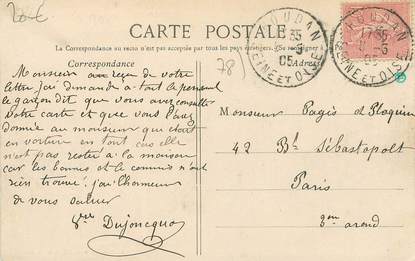 CARTE POSTALE
La Correspondance au recto n'est pas acceptée par tous les pays étrangers. Se renseigner
Correspondance
Adresse
HOUDAN
SEINE ET OISE
HOUDAN
SEINE ET OISE
78)
Monsieur au reçu de votre
lettre j'ai demandé a tout le personel
le garçon dit que vous avez consulté
votre carte et que vous l'avez
donnée au monsieur qui était
en voiture en tout cas elle
n'est pas resté a la maison
car les bonnes et le commis n'ont
rien trouvé. j'ai l'honneur
de vous saluer
Dujoncquoy
Monsieur Pagès et Ploquin
42 Bd Sébastopolt
Paris
arond